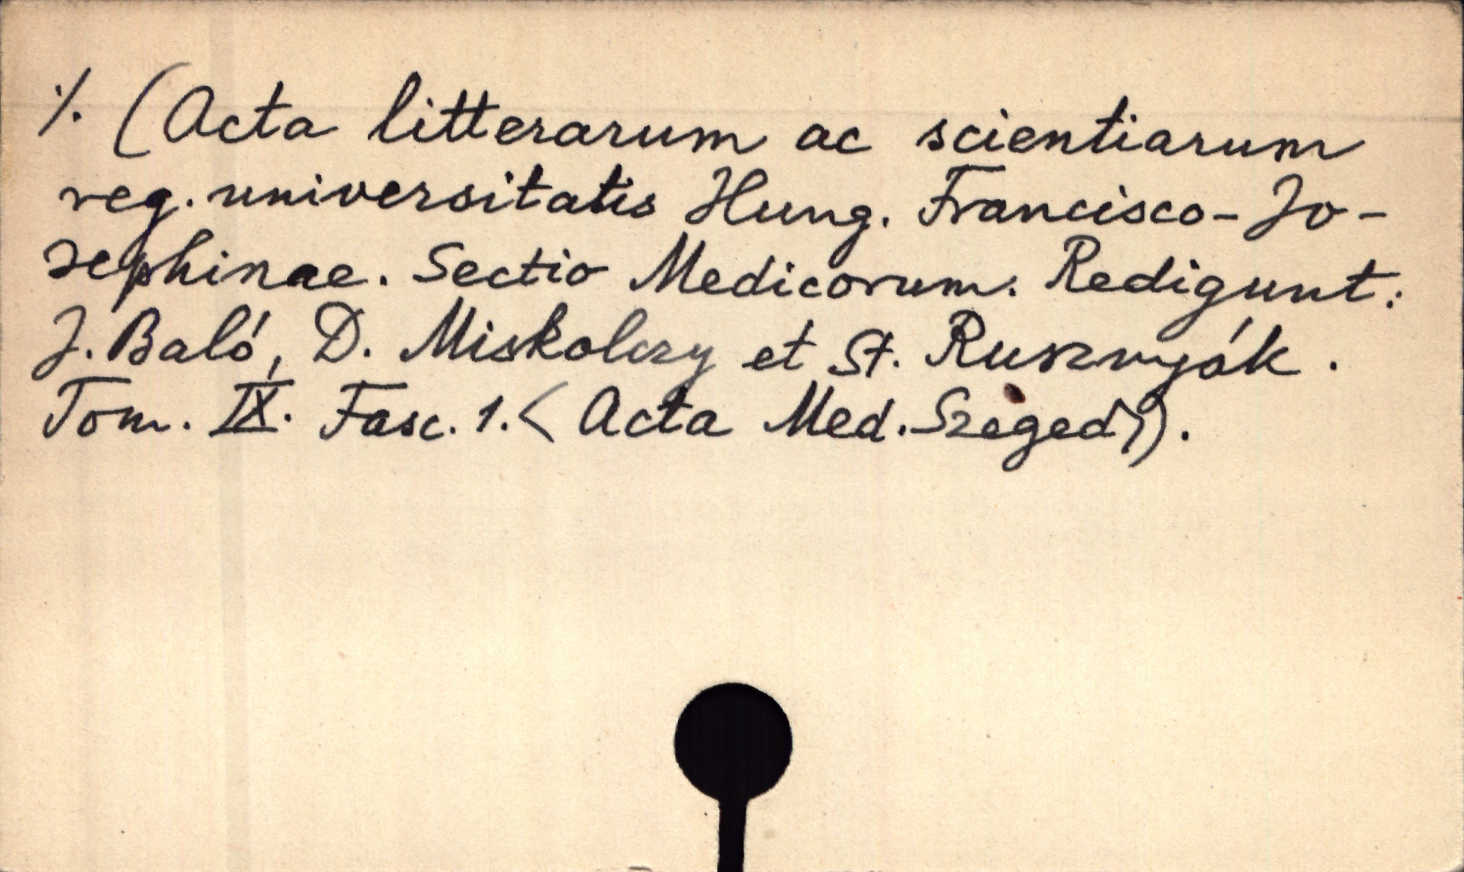 ./. (Acta litterarum ac scientiarum
reg. universitatis Hung. Francisco-Jo-
sephinae. Sectio Medicorum. Redigunt:
J. Baló, D. Miskolczy et St. Rusznyák.
Tom. IX. Fasc. 1. < Acta Med. Szeged>).